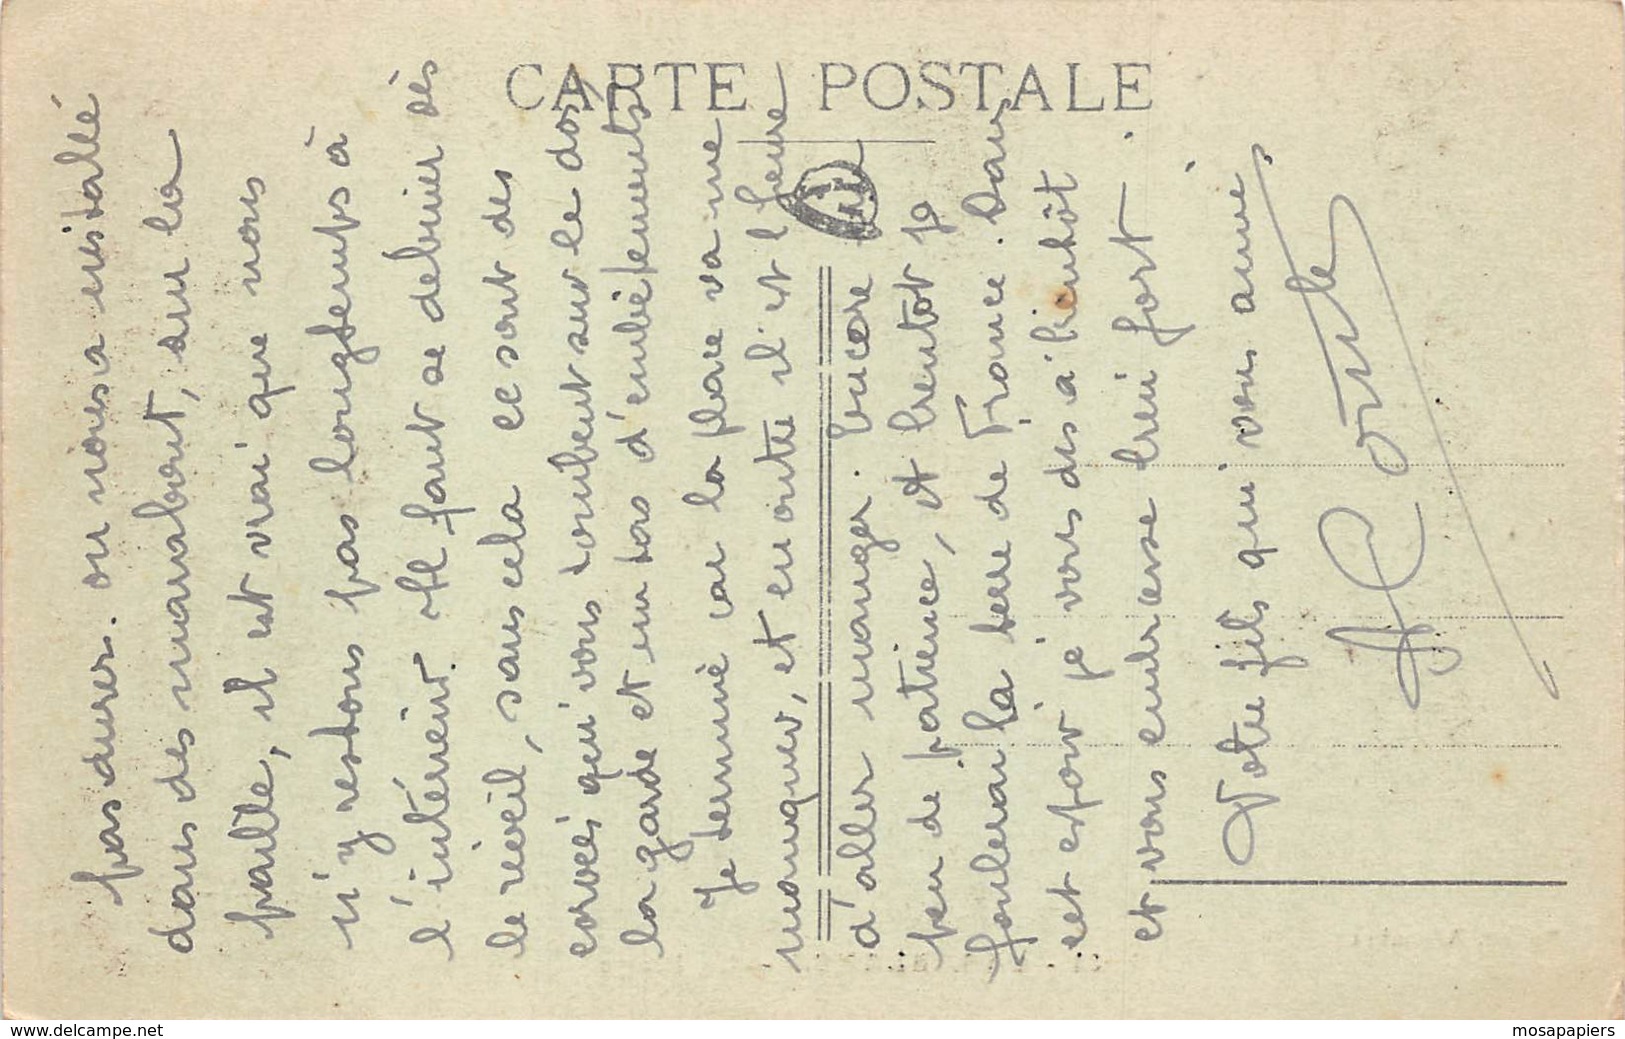 CARTE POSTALE
pas durer. on nous a installé
dans des marabout, sur la
paille, il est vrai que nous
n'y restons pas longtemps à
l'intérieur. Il faut se debiner dès
le réveil, sans cela ce sont des
corvées qui vous tombent sur le dos,
la garde et un tas d'embêtements.
Je termine car la place va me
manquer, et en outre il est l'heure
d'aller manger. Encore un
peu de patience, et bientot je
foulerai la terre de France. Dans
cet espoir je vous dis à bientôt
et vous embrasse bien fort.
Votre fils qui vous aime
www.delcampe.net
mosapapiers